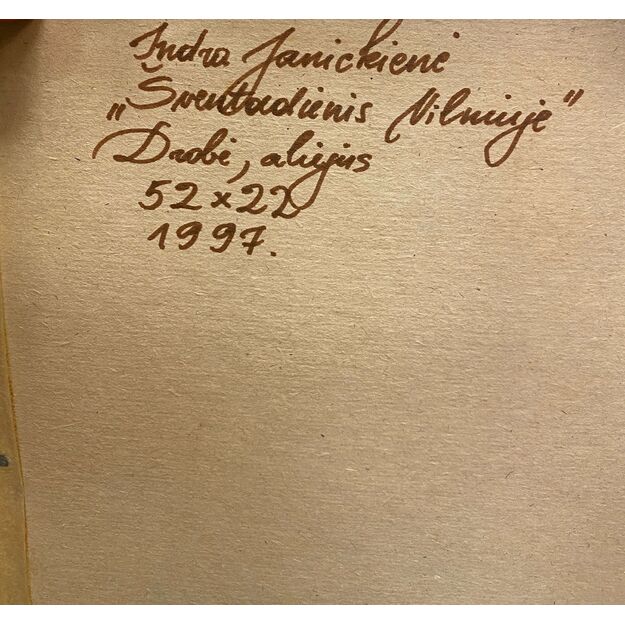 Indra Janickienė
„Šventadienis Vilniuje"
Drobė, aliejus
52 x 22
1997.